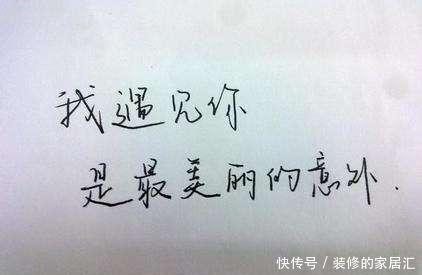 我遇见你
是最美丽的意外.
快传号/装修的家居汇